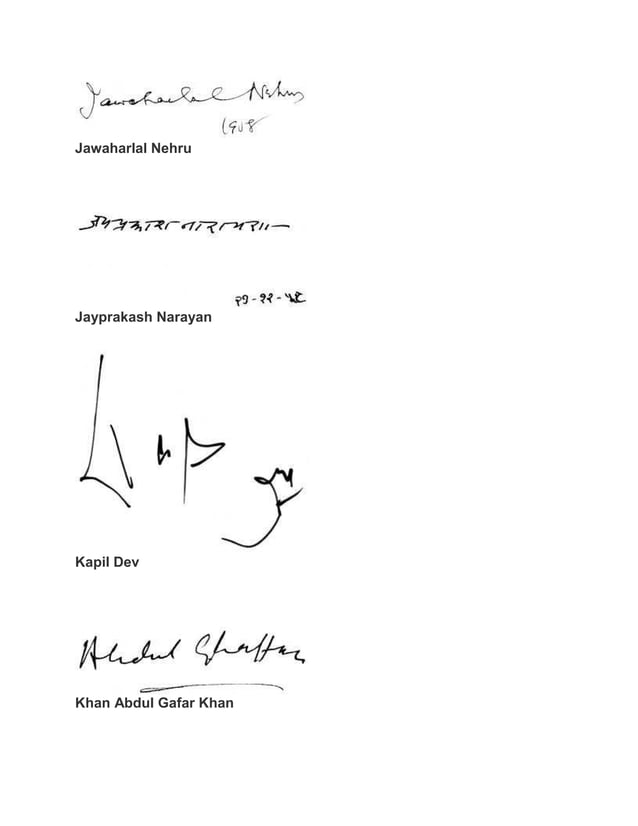 Jawaharlal Nehru
Jawaharlal Nehru
जयप्रकाश नारायण
Jayprakash Narayan
Kapil Dev
Abdul Ghaffar
Khan Abdul Gafar Khan